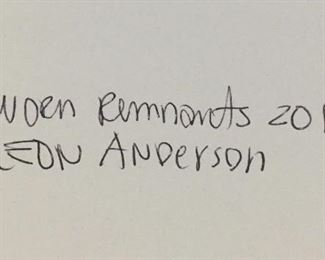 Remnants 20
LEON Anderson